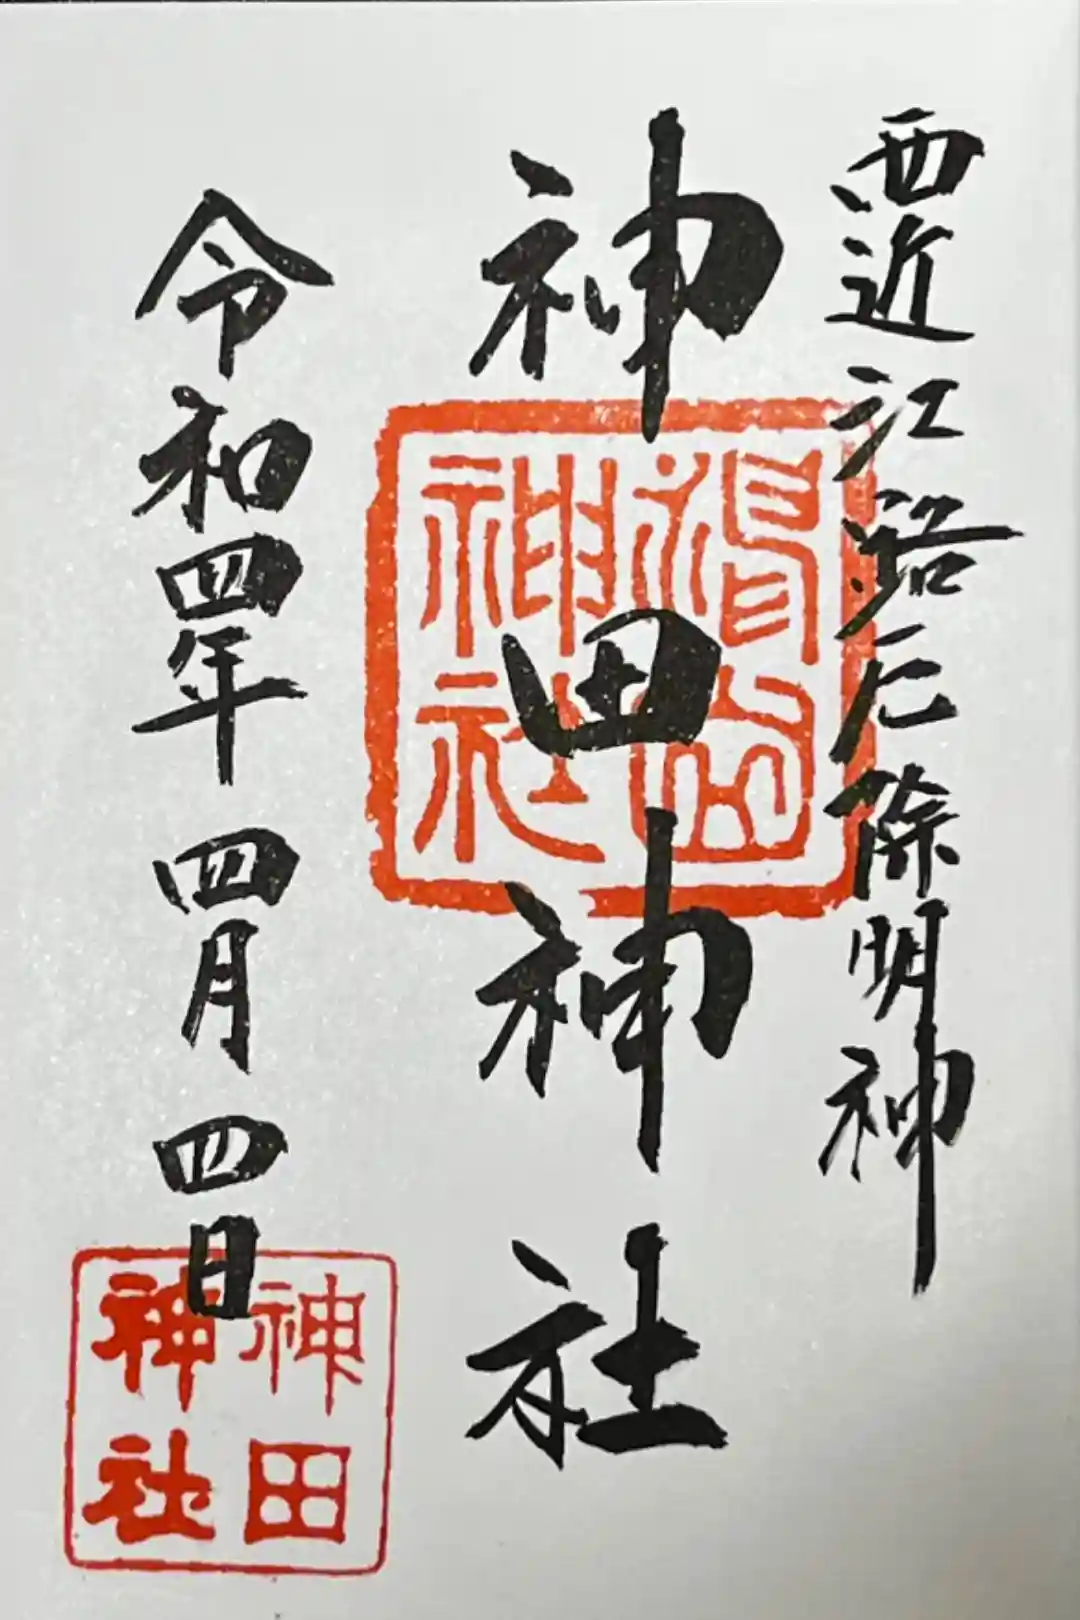 西近江路厄除明神
神田神社
令和四年 四月 四日
神社
神田
神社